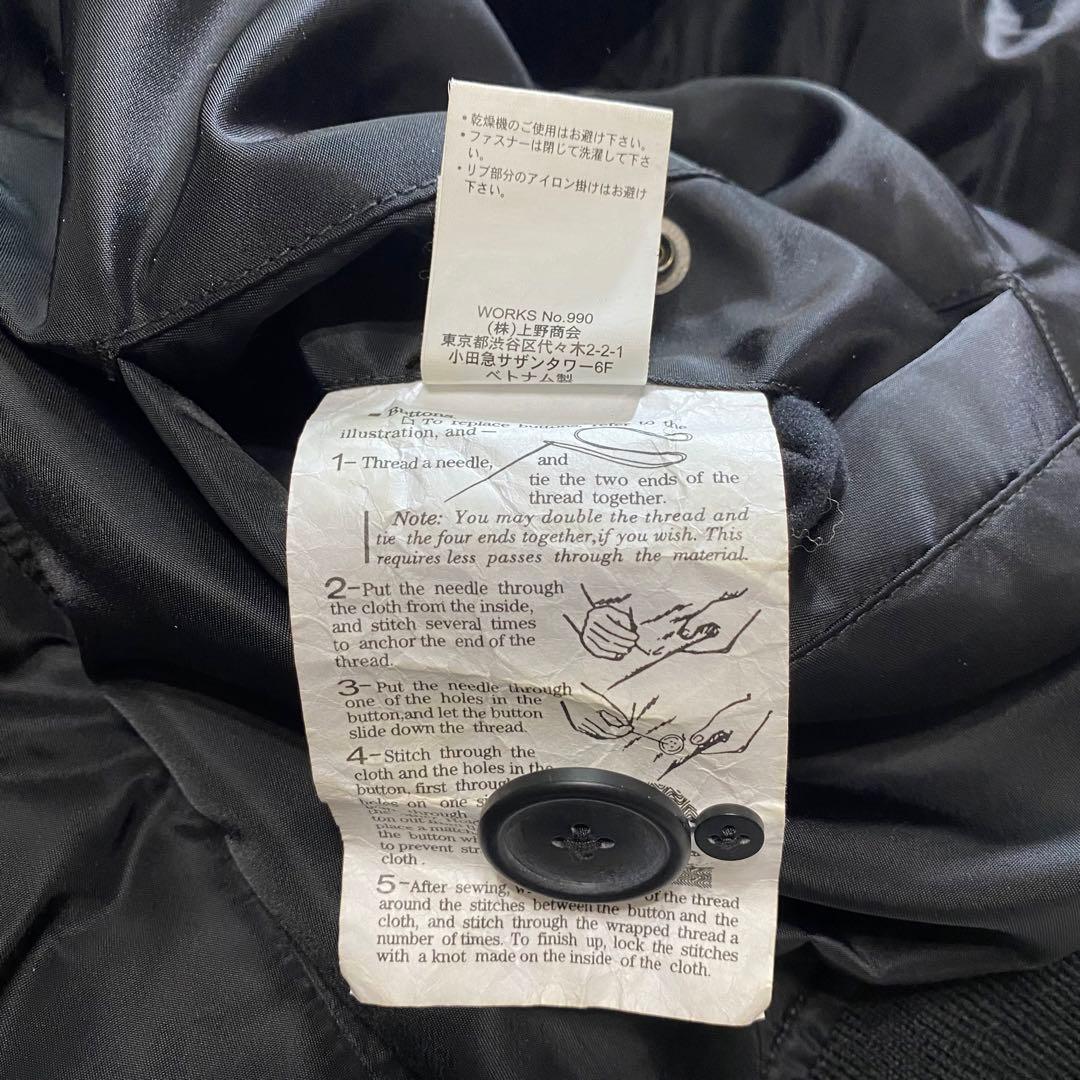 ・乾燥機のご使用はお避け下さい。
・ファスナーは閉じて洗濯して下さ
い。
・リブ部分のアイロン掛けはお避け
下さい。
WORKS No.990
(株)上野商会
東京都渋谷区代々木2-2-1
小田急サザンタワー6F
ベトナム製
Buttons
To replace buttons, refer to the
illustration, and—
1- Thread a needle, and
tie the two ends of the
thread together.
Note: You may double the thread and
tie the four ends together,if you wish. This
requires less passes through the material.
2-Put the needle through
the cloth from the inside,
and stitch several times
to anchor the end of the
thread.
3-Put the needle through
one of the holes in the
button,and let the button
slide down the thread.
4-Stitch through the
cloth and the holes in the
button, first through
holes on one
through
ton out
place a
the button
to prevent
cloth.
5-After sewing, of the thread
around the stitches between the button and the
cloth, and stitch through the wrapped thread a
number of times. To finish up, lock the stitches
with a knot made on the inside of the cloth.